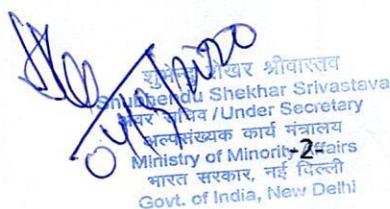 शुभेन्दु शेखर श्रीवास्तव
Shubhendu Shekhar Srivastava
अवर सचिव / Under Secretary
अल्पसंख्यक कार्य मंत्रालय
Ministry of Minority Affairs
-2-
भारत सरकार, नई दिल्ली
Govt. of India, New Delhi